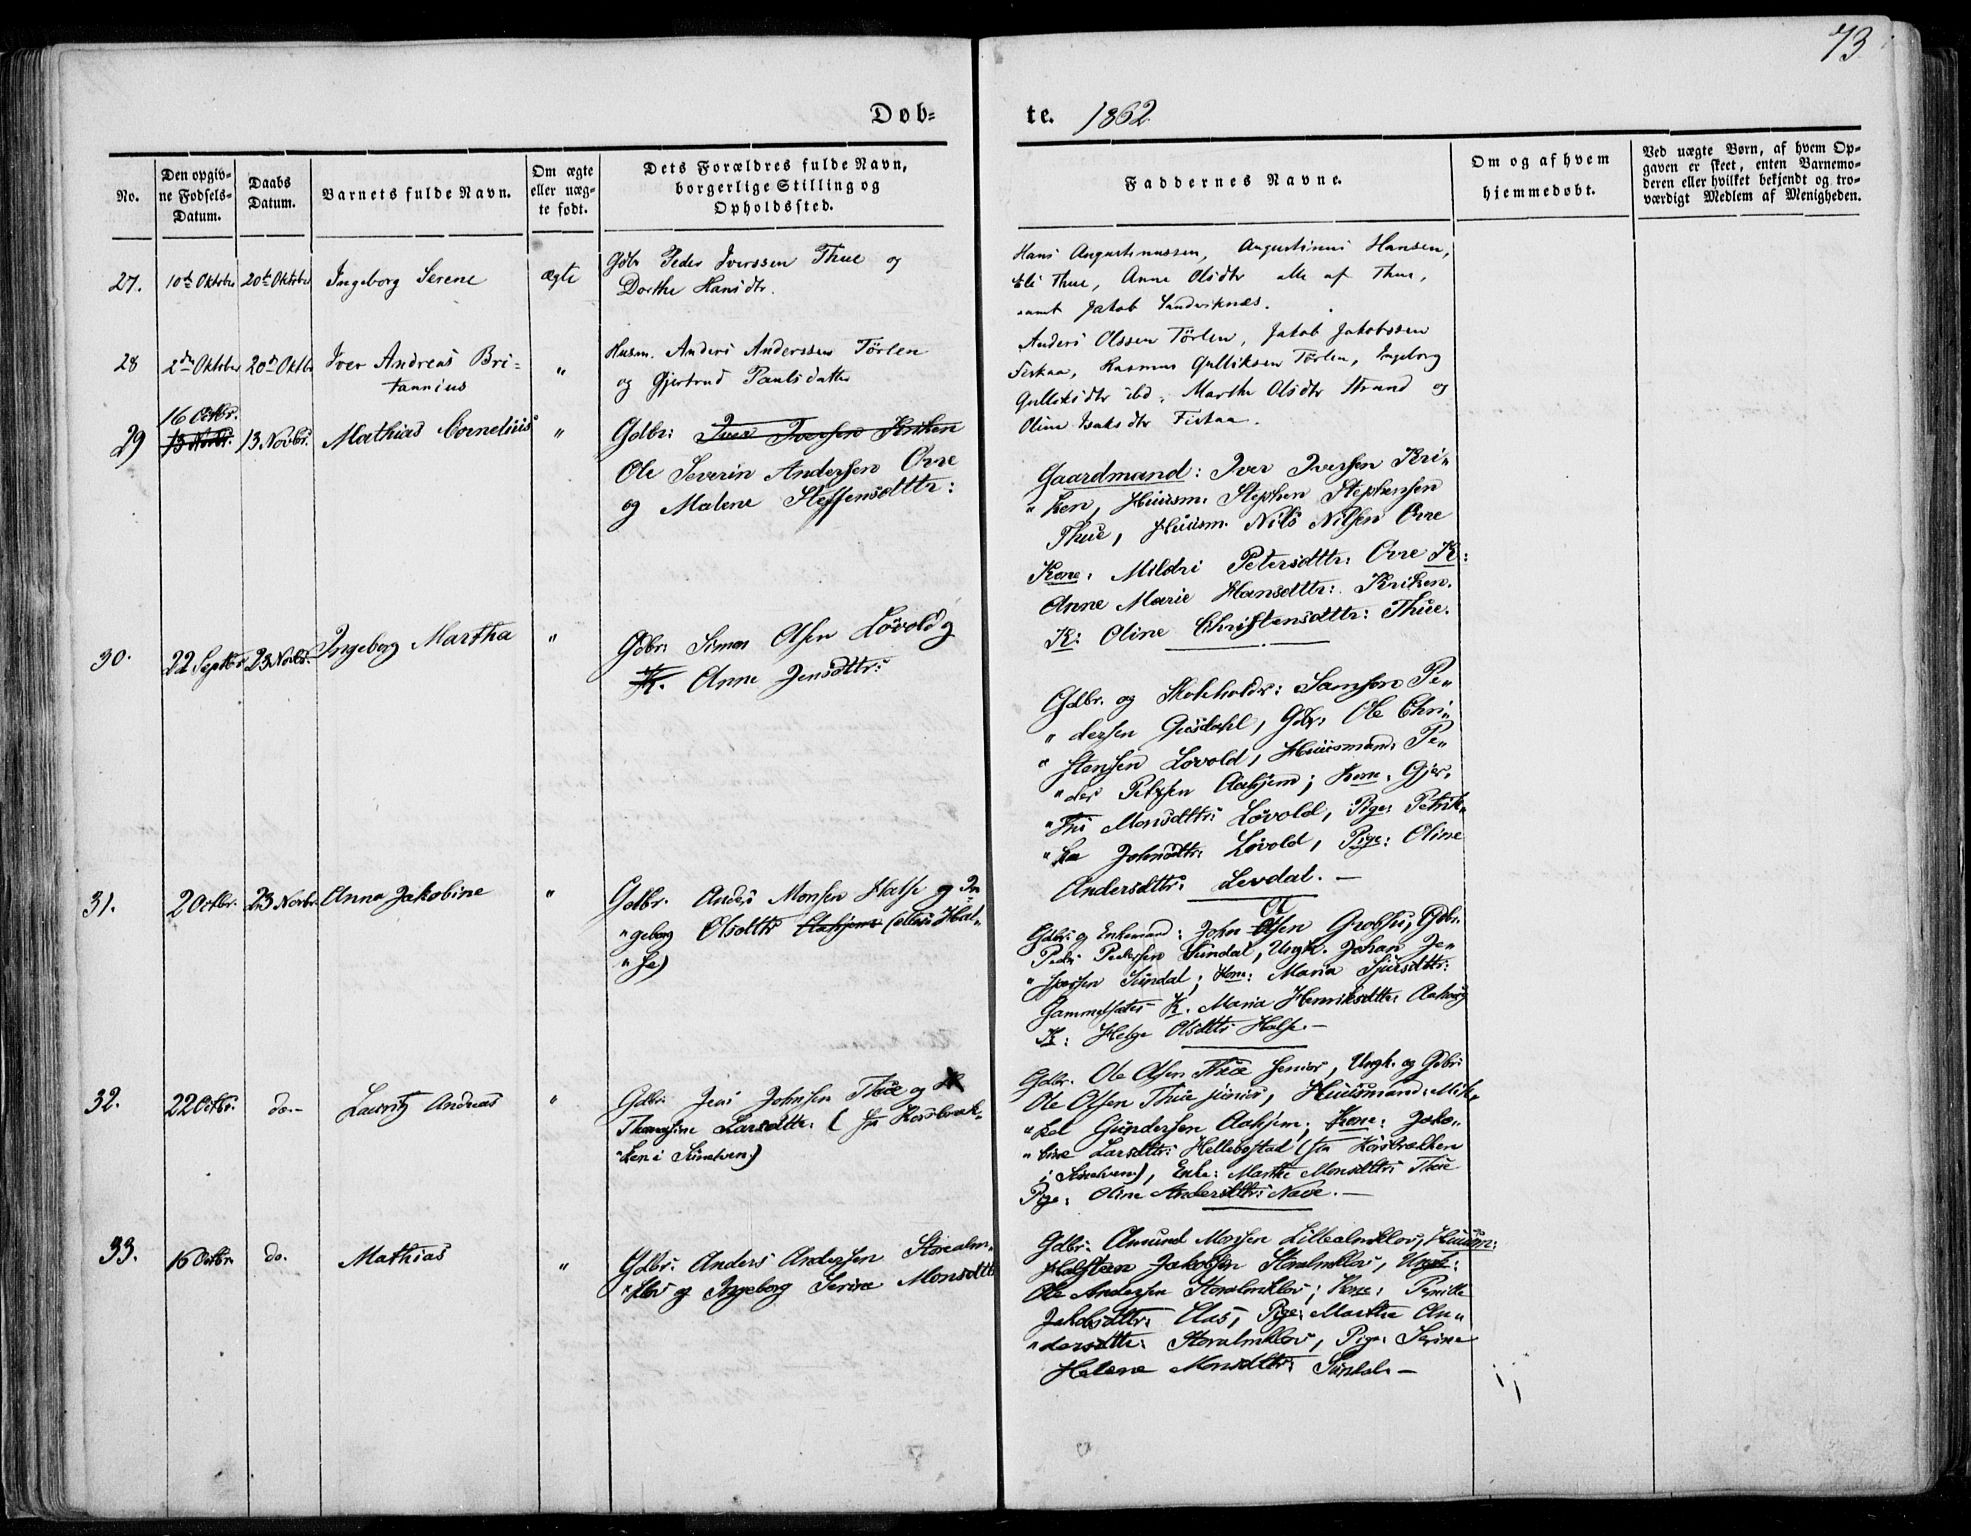 73
Døb-
te. 1862
No.
Den opgiv-
ne Fødsels-
Datum.
Daabs
Datum.
Barnets fulde Navn.
Om ægte
eller uæg-
te født.
Dets Forældres fulde Navn,
borgerlige Stilling og
Opholdssted.
Faddernes Navne.
Om og af hvem
hjemmedøbt.
Ved uægte Børn, af hvem Op-
gaven er skeet, enten Barnemo-
deren eller hvilket bekjendt og tro-
værdigt Medlem af Menigheden.
27. 10de Oktober 20de Oktober Ingeborg Serene ægte
Gdbr Peder Iverssen Thue og
Dorthe Hansdtr.
Hans Augustinussen, Augustinus Hansen,
Eli Thue, Anne Olsdtr alle af Thue,
samt Jakob Sandviknæs.
28 2den Oktober 20de Oktbr Iver Andreas Bri-
tannius "
Husm. Anders Anderssen Tørlen
og Gjertrud Paulsdatter
Anders Olssen Tørlen, Jakob Jakobssen
Fiskaa, Rasmus Gulliksen Tørlen, Ingeborg
Gulliksdtr ibd, Marthe Olsdtr Strand og
Oline Isaksdtr Fiskaa.
29 16 Octbr. 13 Novbr. 13 Novbr. Mathias Cornelius "
Gdbr: Iver Iversen Kriken
Ole Severin Andersen Ørre
og Malene Steffensdttr:
Gaardmand: Iver Iversen Kri-
"ken, Huusm. Stephen Stephensen
Thue, Huusm. Nils Nilsen Ørre
Kone: Mildri Petersdttr: Ørre K:
Anne Marie Hansdttr: Kriken.
K: Oline Christensdttr: Thue.
30. 22 Septbr 23 Novbr. Ingeborg Martha "
Gdbr: Simon Olsen Løvold og
K. Anne Jensdttr:
Gdbr. og Skoleholdr: Samson Pe-
"dersen Gusdahl, Gdbr: Ole Chri-
"stensen Løvold, Huusmand: Pe-
"der Petersen Aahjem; Kone: Gjer-
"tru Monsdttr: Løvold, Pige: Petrik-
"ka Johnsdttr: Løvold, Pige: Oline
Andersdttr: Løvdal. —
31. 2 Octbr. 23 Novbr. Anna Jakobine "
Gdbr. Anders Monsen Halse og In
"geborg Olsdttr Aahjem (ellers Hal-
"se)
Gdbr: og Enkemand: John Olsen Gro, Gdbr:
Peder Pedersen Sundal, Ungk. Johan Je-
"tsen Sundal; Kone: Maria Sjursdttr:
Gammelsæter K. Maria Henriksdttr:
K: Helge Olsdttr Halse. —
32. 22 Octbr. do.- Lauritz Andreas "
Gdbr: Jens Johnsen Thue og K
Thomasine Larsdttr: (fra Korsbræk-
"ken i Sunelven.)
Gdbr. Ole Olsen Thue senior, Ungk. og Gdbr:
Ole Olsen Thue junior, Huusmand: Mik-
"kel Gundersen Aahjem; Kone: Jako-
"bine Larsdttr: Hellebostad (fra Korsbrækken
i Sunelven.), Enke: Marthe Monsdttr: Thue
Pige: Oline Andersdttr: Nave. —
33. 16 Octbr. do. Mathias "
Gdbr: Anders Andersen Storalm-
"klov og Ingeborg Serine Monsdttr
Gdbr: Amund Monsen Lillealmklov, Huusm:
Halsten Jakobsen Storalmklov, Ungk:
Ole Andersen Storalmklov; Kone: Pernille
Jakobsdttr: Aas, Pige: Marthe An-
"dersdttr: Storalmklov, Pige: Serine
Helene Monsdttr: Sundal. —